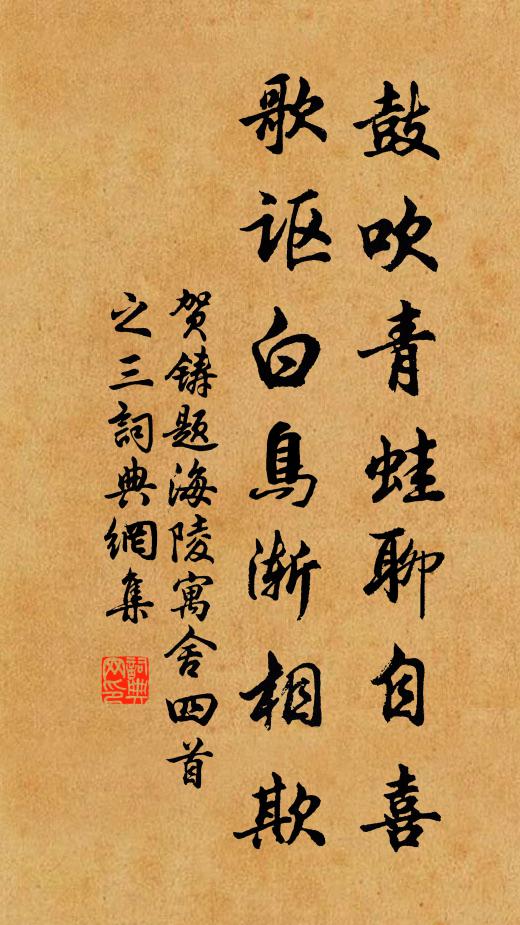 鼓吹青蛙聊自喜
歌讴白鳥渐相欺
贺铸题海陵寓舍四首
之三詞典網集
詞典
网印